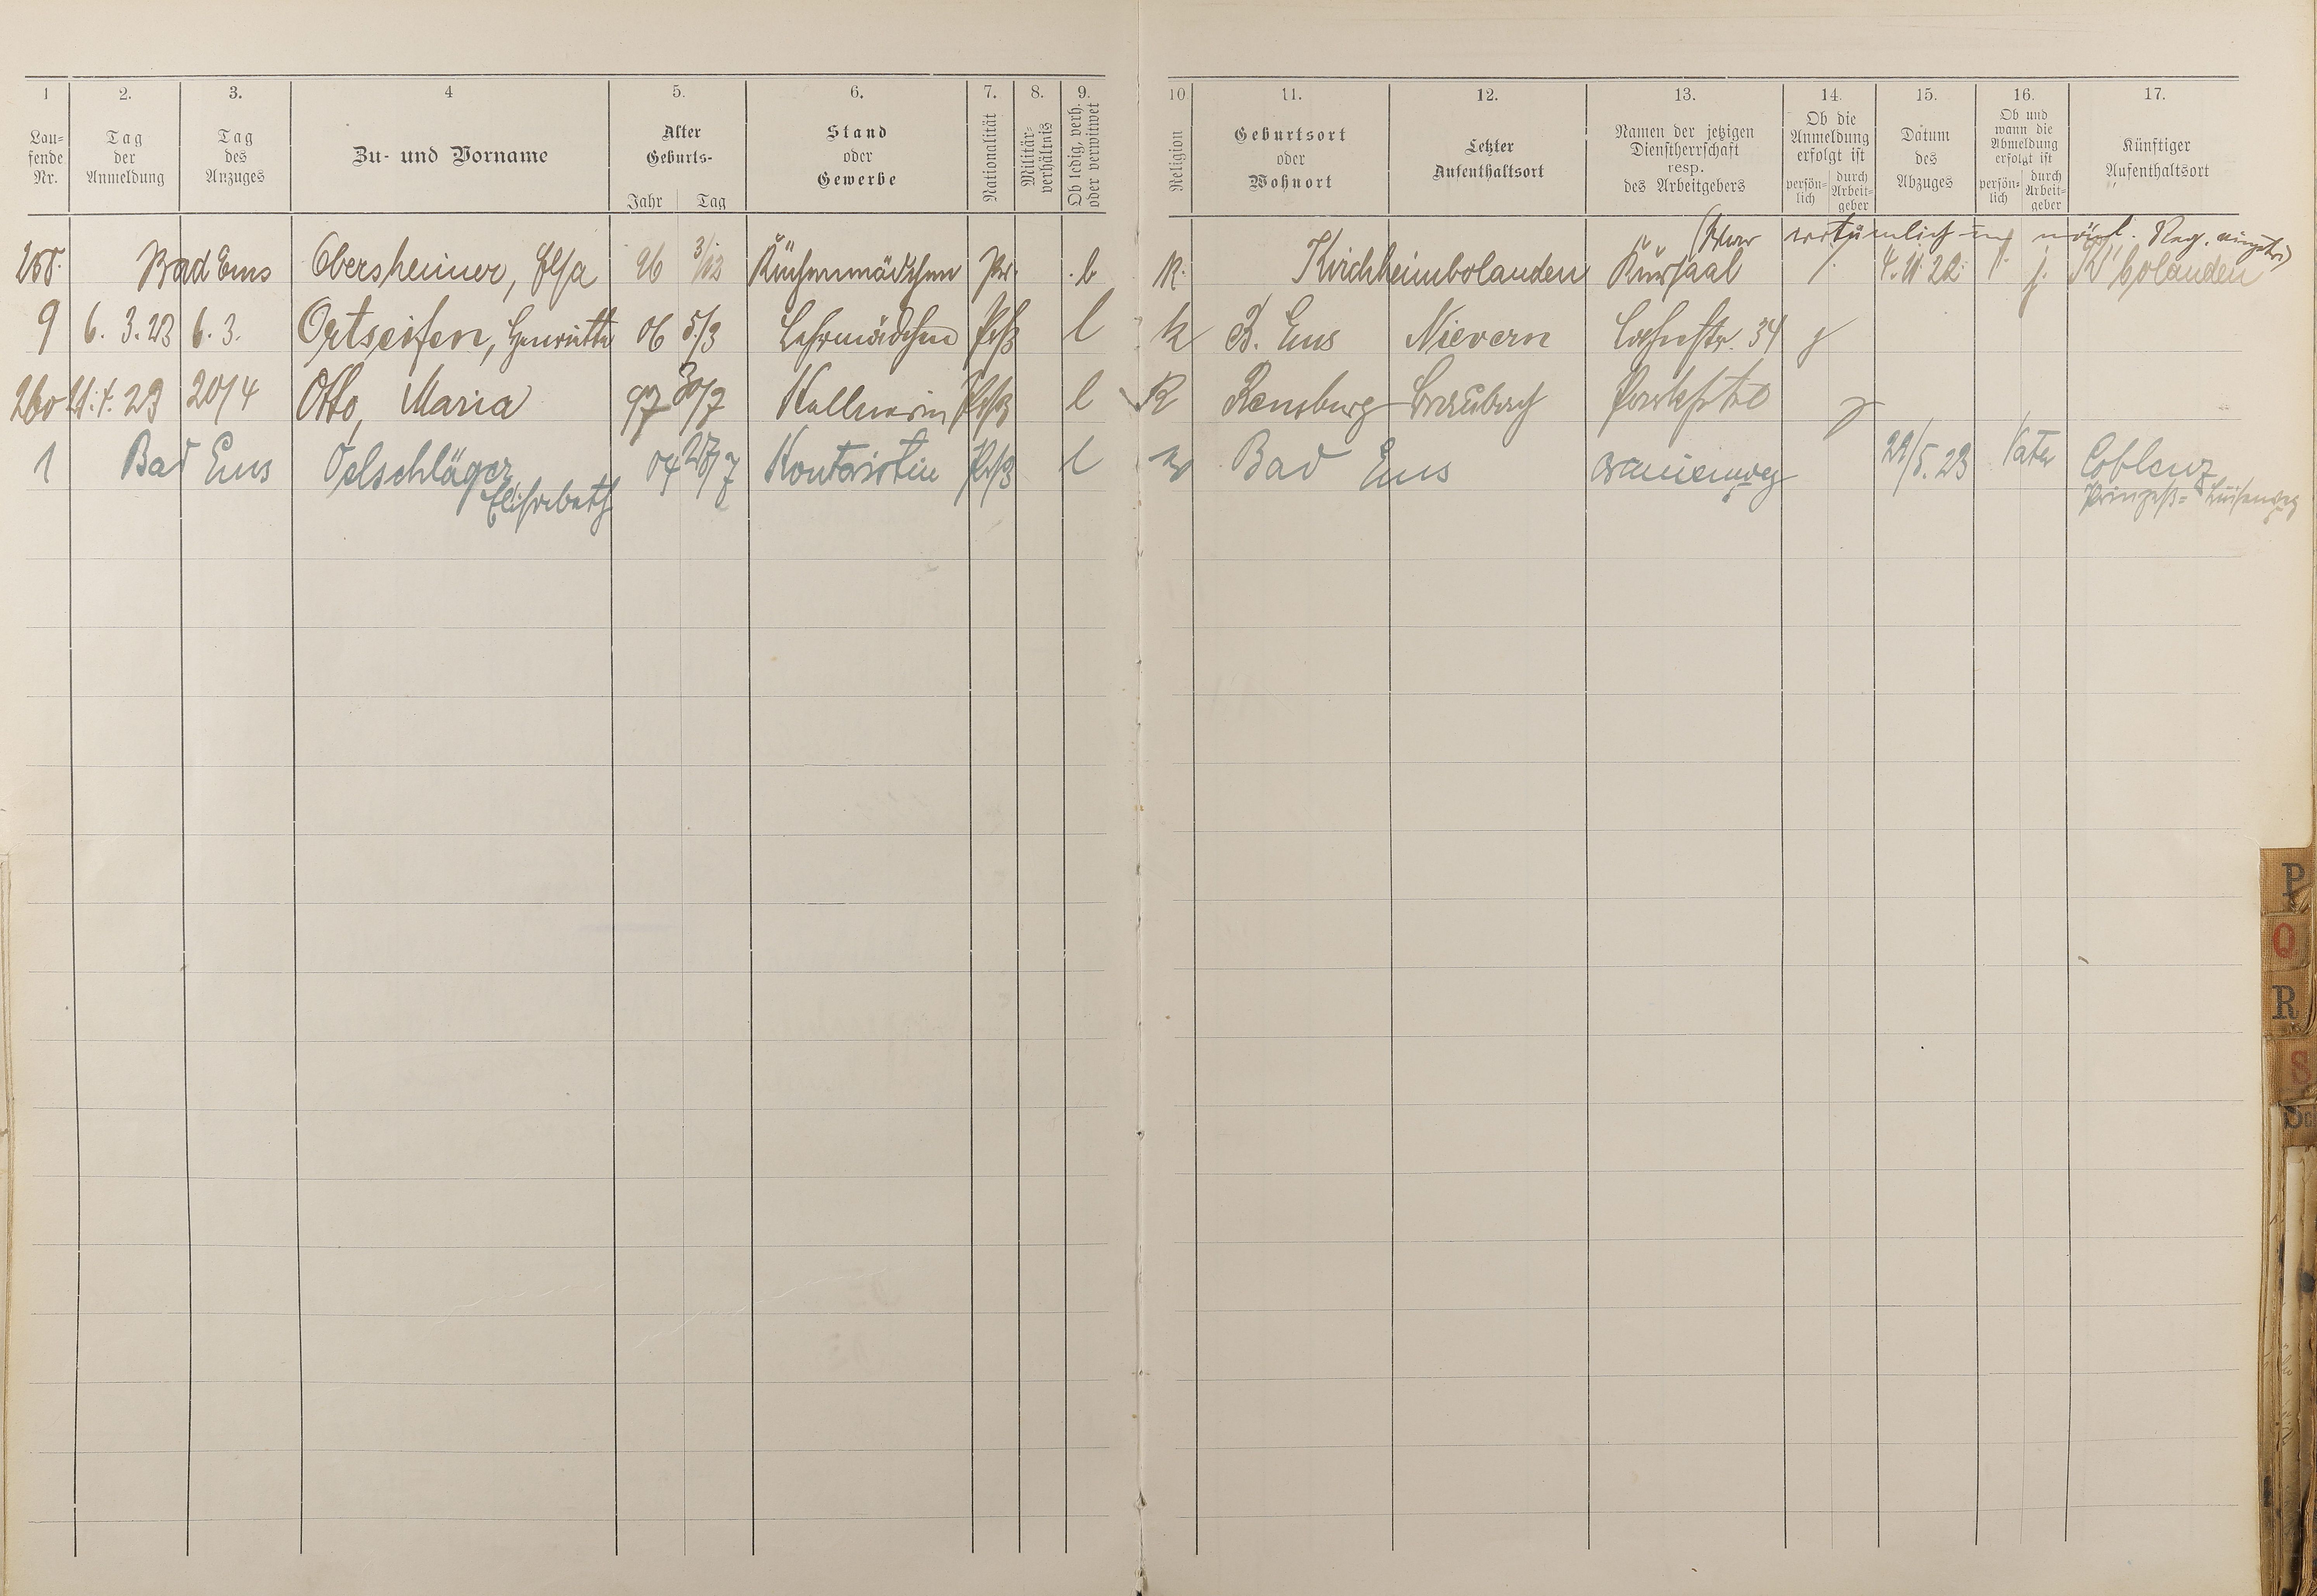 1 2. 3. 4 5. 6. 7. 8. 9. 10. 11. 12. 13. 14. 15. 16. 17.
Lau-
fende
Nr.
Tag
der
Anmeldung
Tag
des
Anzuges
Zu- und Vorname
Alter
Geburts-
Jahr Tag
Stand
oder
Gewerbe
Nationalität
Militär-
verhältnis
Ob ledig, verh.
oder verwitwet
Religion
Geburtsort
oder
Wohnort
Letzter
Aufenthaltsort
Namen der jetzigen
Dienstherrschaft
resp.
des Arbeitgebers
Ob die
Anmeldung
erfolgt ist
persön-
lich
durch
Arbeit-
geber
Datum
des
Abzuges
Ob und
wann die
Abmeldung
erfolgt ist
persön-
lich
durch
Arbeit-
geber
Künftiger
Aufenthaltsort
irrtümlich
Bad Ems Obersheimer, Elsa 96 3/12 Küchenmädchen Pr. Kirchheimbolanden Kursaal 4.11.22 K'bolanden
9 6. 3. 23 6. 3. Ortseifen, Henriette 06 5/3 Lehrmädchen Prß l k B. Ems Nievern Lahnstr. 34
260 21. 4. 23 20/4 Otto, Maria 97 30/7 Kellnerin Prß l K Rensburg Parkhotel
1 Bad Ems Oelschläger 04 28/7 Kontoristin Prß l Bad Ems 22/5. 23 Vater Coblenz
Elisabeth Prinzeß= Luisenweg
P
Q
R
S